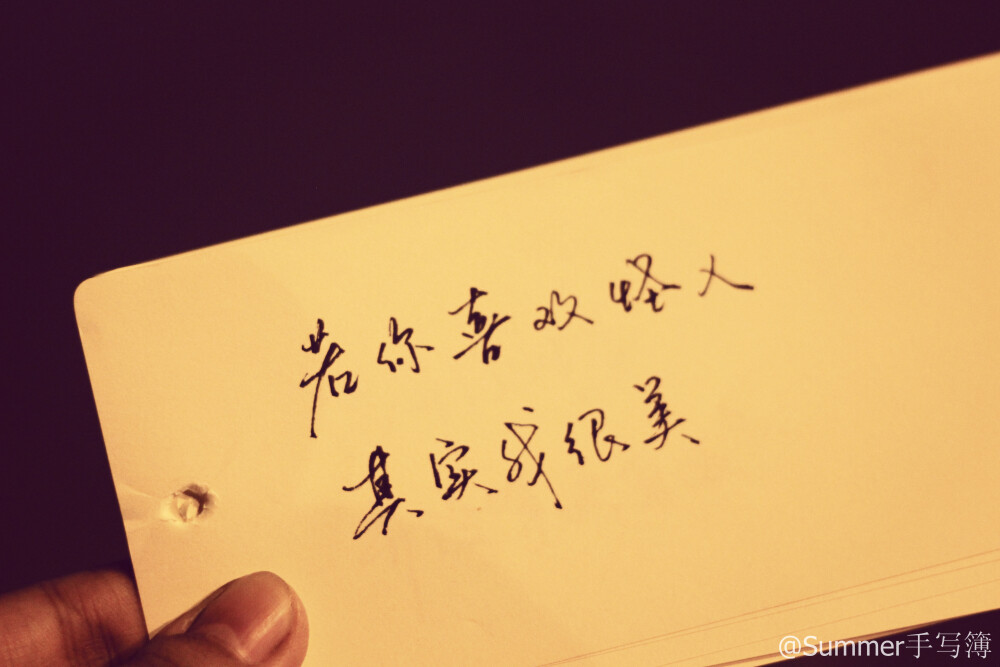 若你喜欢怪人
其实我很美
@Summer手写簿